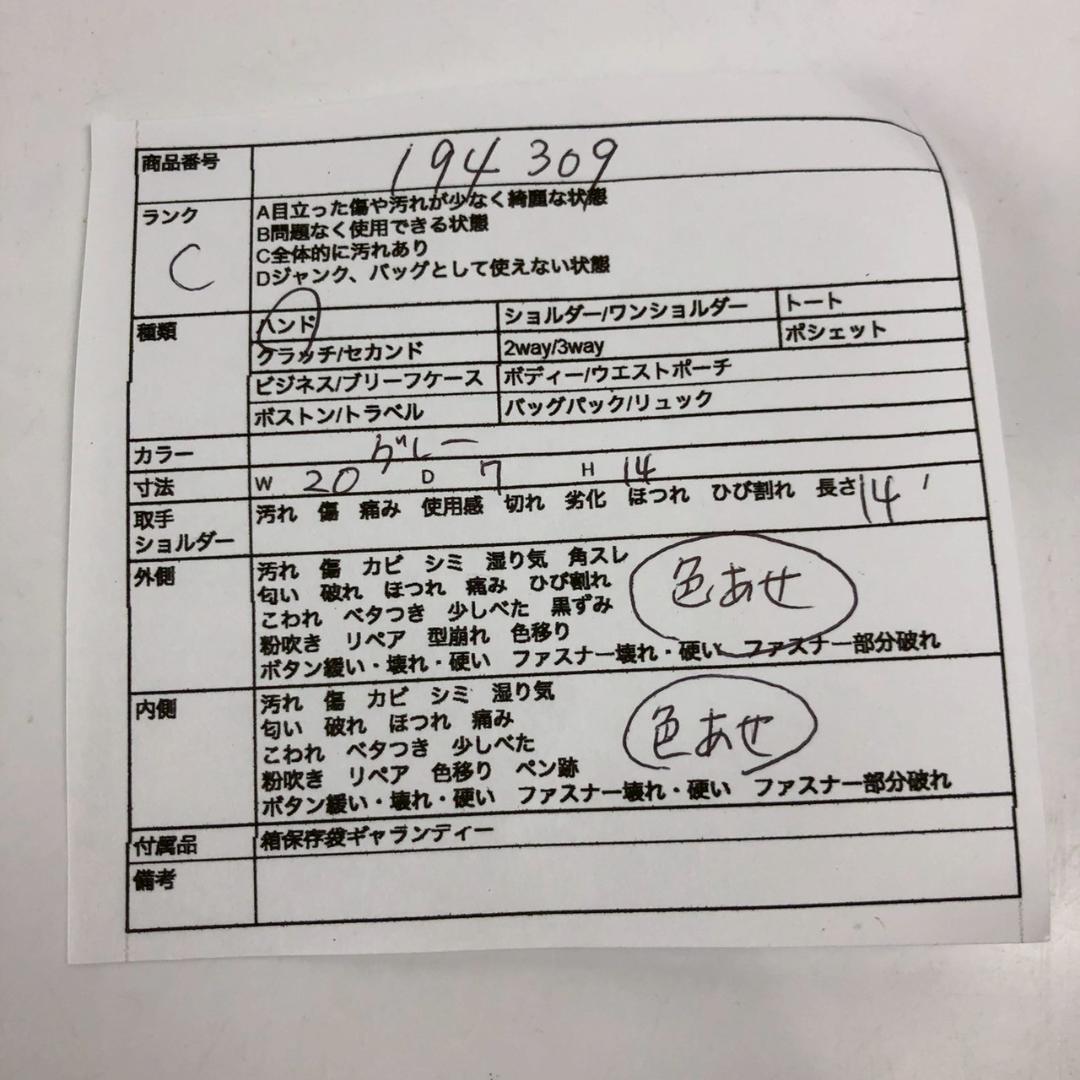 商品番号 194 309
ランク C
A目立った傷や汚れが少なく綺麗な状態
B問題なく使用できる状態
C全体的に汚れあり
Dジャンク、バッグとして使えない状態
種類 ハンド ショルダー/ワンショルダー トート
クラッチ/セカンド 2way/3way ポシェット
ビジネス/ブリーフケース ボディー/ウエストポーチ
ボストン/トラベル バッグパック/リュック
カラー グレー
寸法 W 20 D 7 H 14
取手 汚れ 傷 痛み 使用感 切れ 劣化 ほつれ ひび割れ 長さ 14
ショルダー
外側 汚れ 傷 カビ シミ 湿り気 角スレ
匂い 破れ ほつれ 痛み ひび割れ 色あせ
こわれ ベタつき 少しべた 黒ずみ
粉吹き リペア 型崩れ 色移り
ボタン緩い・壊れ・硬い ファスナー壊れ・硬い ファスナー部分破れ
内側 汚れ 傷 カビ シミ 湿り気
匂い 破れ ほつれ 痛み 色あせ
こわれ ベタつき 少しべた
粉吹き リペア 色移り ペン跡
ボタン緩い・壊れ・硬い ファスナー壊れ・硬い ファスナー部分破れ
付属品 箱保存袋ギャランティー
備考